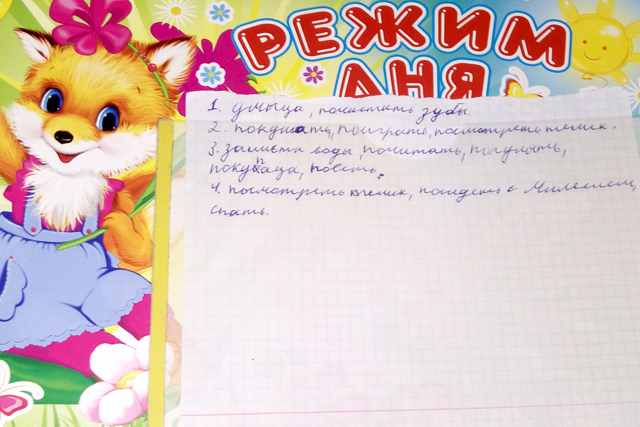 РЕЖИМ
ДНЯ
1. умыца, почистить зубы.
2. покушать, поиграть, посмотреть телик.
3. воды, почитать, погулять,
покупаца, поесть.
4. посмотреть телик, поидеть с
спать.